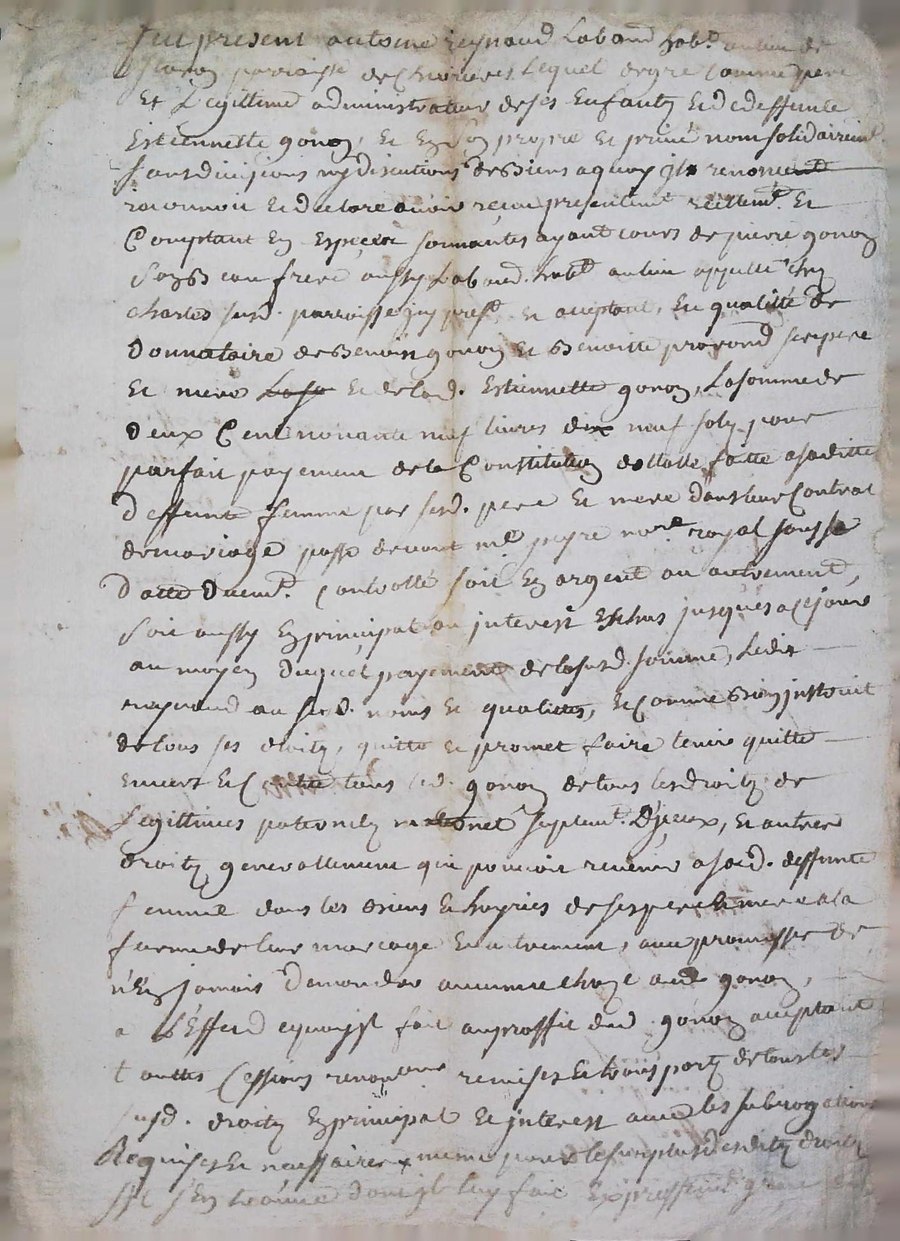 fut present antoine reynaud Laboud. habt. au lieu de
paroisse de Chevrieres Lequel de gre comme pere
Et Legittime administrateur de ses Enfantz Et de deffunte
Estiennette gonon, Et En son propre Et privé nom solidairemt.
sans divisions ny discutions de Biens a quoy ils renoncent
reconnoit Et declare avoir reçeu presentemt. reellemt. Et
Comptant En Especes sonnantes ayant cours de pierre gonon
son Beaufrere aussy Laboud. habt. au lieu appellé chez
charles susd. parroisse icy prest. Et aceptant, En qualitté de
Donnataire de Benoist gonon Et Benoitte ses pere
Et mere Et de lad. Estiennette gonon, La somme de
Deux Cent nonante neuf livres dix neuf solz pour
parfait payement de la Constitution dottalle faitte a saditte
Deffunte femme par sesd. pere Et mere dans leur Contrat
de mariage passé devant me. peyre nore. royal sous sa
Datte Duemt. Controllé soit En argent ou autrement,
soit aussy En principal ou interest Eschus jusques a Ce jour
au moyen Duquel payement de la susd. somme, Ledit
reynaud au susd. noms Et qualittés, Et Comme Bien instruit
de tous ses droitz, quitte Et promet faire tenir quitte
Envers Et Contre tous led. gonon de tous les droitz de
Legittimes paternelz maternelz supplemt. D'iceux, Et autres
droitz generallement qui pouvoit revenir a sad. deffunte
femme dans les Biens Et hoyries de ses pere Et mere a la
forme de leur mariage Et autrement, avec promesse de
n'En jamais Demander aucune choze aud. gonon,
a L'Effect de quoy il fait au proffit dud. gonon aceptant
touttes Cessions renonons. remises Et transportz de tous les
susd. droitz En principal Et interest avec les subrogations
Requises Et necessaires mesme pour le surplus desditz droitz
s'il s'En treuve dont il luy fait Expressemt.